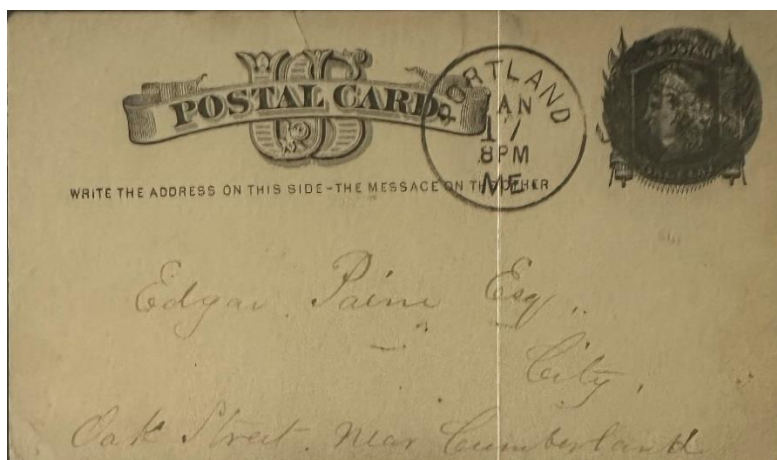 US
POSTAL CARD.
PORTLAND
JAN
17
8PM
ME.
WRITE THE ADDRESS ON THIS SIDE-THE MESSAGE ON THE OTHER
Edgar Paine Esq.
City.
Oak Street. Near Cumberland